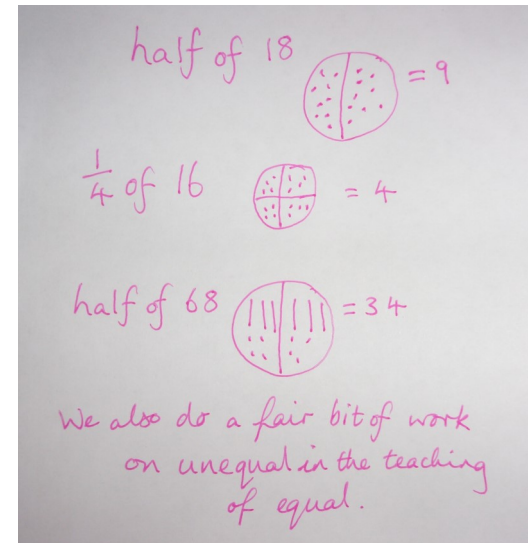 half of 18 = 9
1/4 of 16 = 4
half of 68 = 34
We also do a fair bit of work
on unequal in the teaching
of equal.